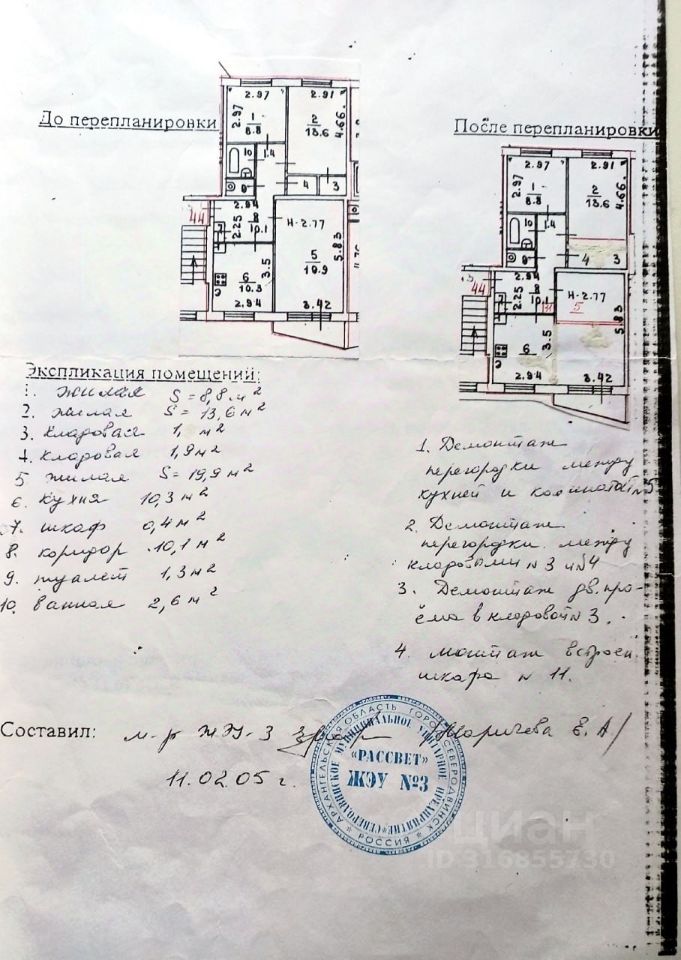 До перепланировки
После перепланировки
2.97
2.91
2.97
1
8.8
2
13.6
4.66
10
1.4
9
4
3
2.94
44
2.25
8
10.1
н-2.77
5
19.9
5.83
6
10.3
3.5
2.94
3.42
2.97
2.91
2.97
1
8.8
2
13.6
4.66
10
1.4
9
4
3
2.94
44
2.25
8
10.1
н-2.77
5
5.83
6
3.5
2.94
3.42
Экспликация помещений:
1. жилая S = 8,8 м²
2. жилая S = 13,6 м²
3. кладовая 1, м²
4. кладовая 1,9 м²
5 жилая S = 19,9 м²
6. кухня 10,3 м²
7. шкаф 0,4 м²
8. коридор 10,1 м²
9. туалет 1,3 м²
10. ванная 2,6 м²
1. Демонтаж
перегородки между
кухней и комнатой №5
2. Демонтаж
перегородки между
кладовыми №3 и №4
3. Демонтаж дв. про-
ёма в кладовой №3.
4. монтаж встроен.
шкафа № 11.
Составил: м-р ЖЭУ-3 Е. А/
11.02.05 г.
АРХАНГЕЛЬСКАЯ ОБЛАСТЬ ГОРОД СЕВЕРОДВИНСК
РОССИЯ
СЕВЕРОДВИНСКОЕ МУНИЦИПАЛЬНОЕ УНИТАРНОЕ ПРЕДПРИЯТИЕ
«РАССВЕТ»
ЖЭУ №3
циан
ID 316855730